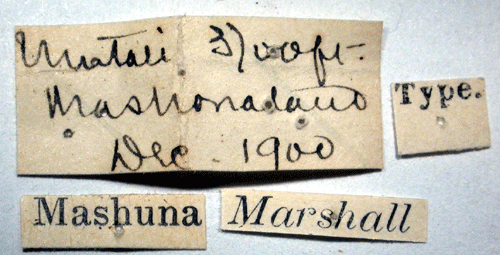 Umtali 3700ft.
Mashonaland
Dec. 1900
Type.
Mashuna
Marshall